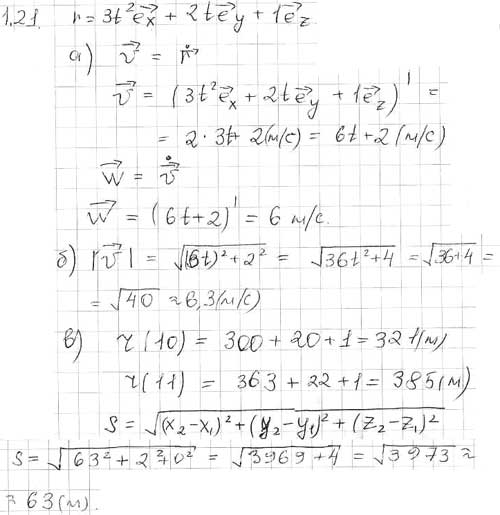 1.21. r = 3t²e⃗x + 2te⃗y + 1e⃗z.
а) v⃗ = ṙ⃗
v⃗ = (3t²e⃗x + 2te⃗y + 1e⃗z)' =
= 2·3t + 2(м/с) = 6t + 2 (м/с)
w⃗ = v̇⃗
w⃗ = (6t+2)' = 6 м/с.
б) |v⃗| = √((6t)² + 2²) = √(36t²+4) = √(36+4) =
= √40 ≈ 6,3(м/с)
в) r(10) = 300 + 20 + 1 = 321(м)
r(11) = 363 + 22 + 1 = 385(м)
S = √((x₂-x₁)² + (y₂-y₁)² + (z₂-z₁)²)
S = √(63² + 2² + 0²) = √(3969+4) = √3973 ≈
≈ 63(м).